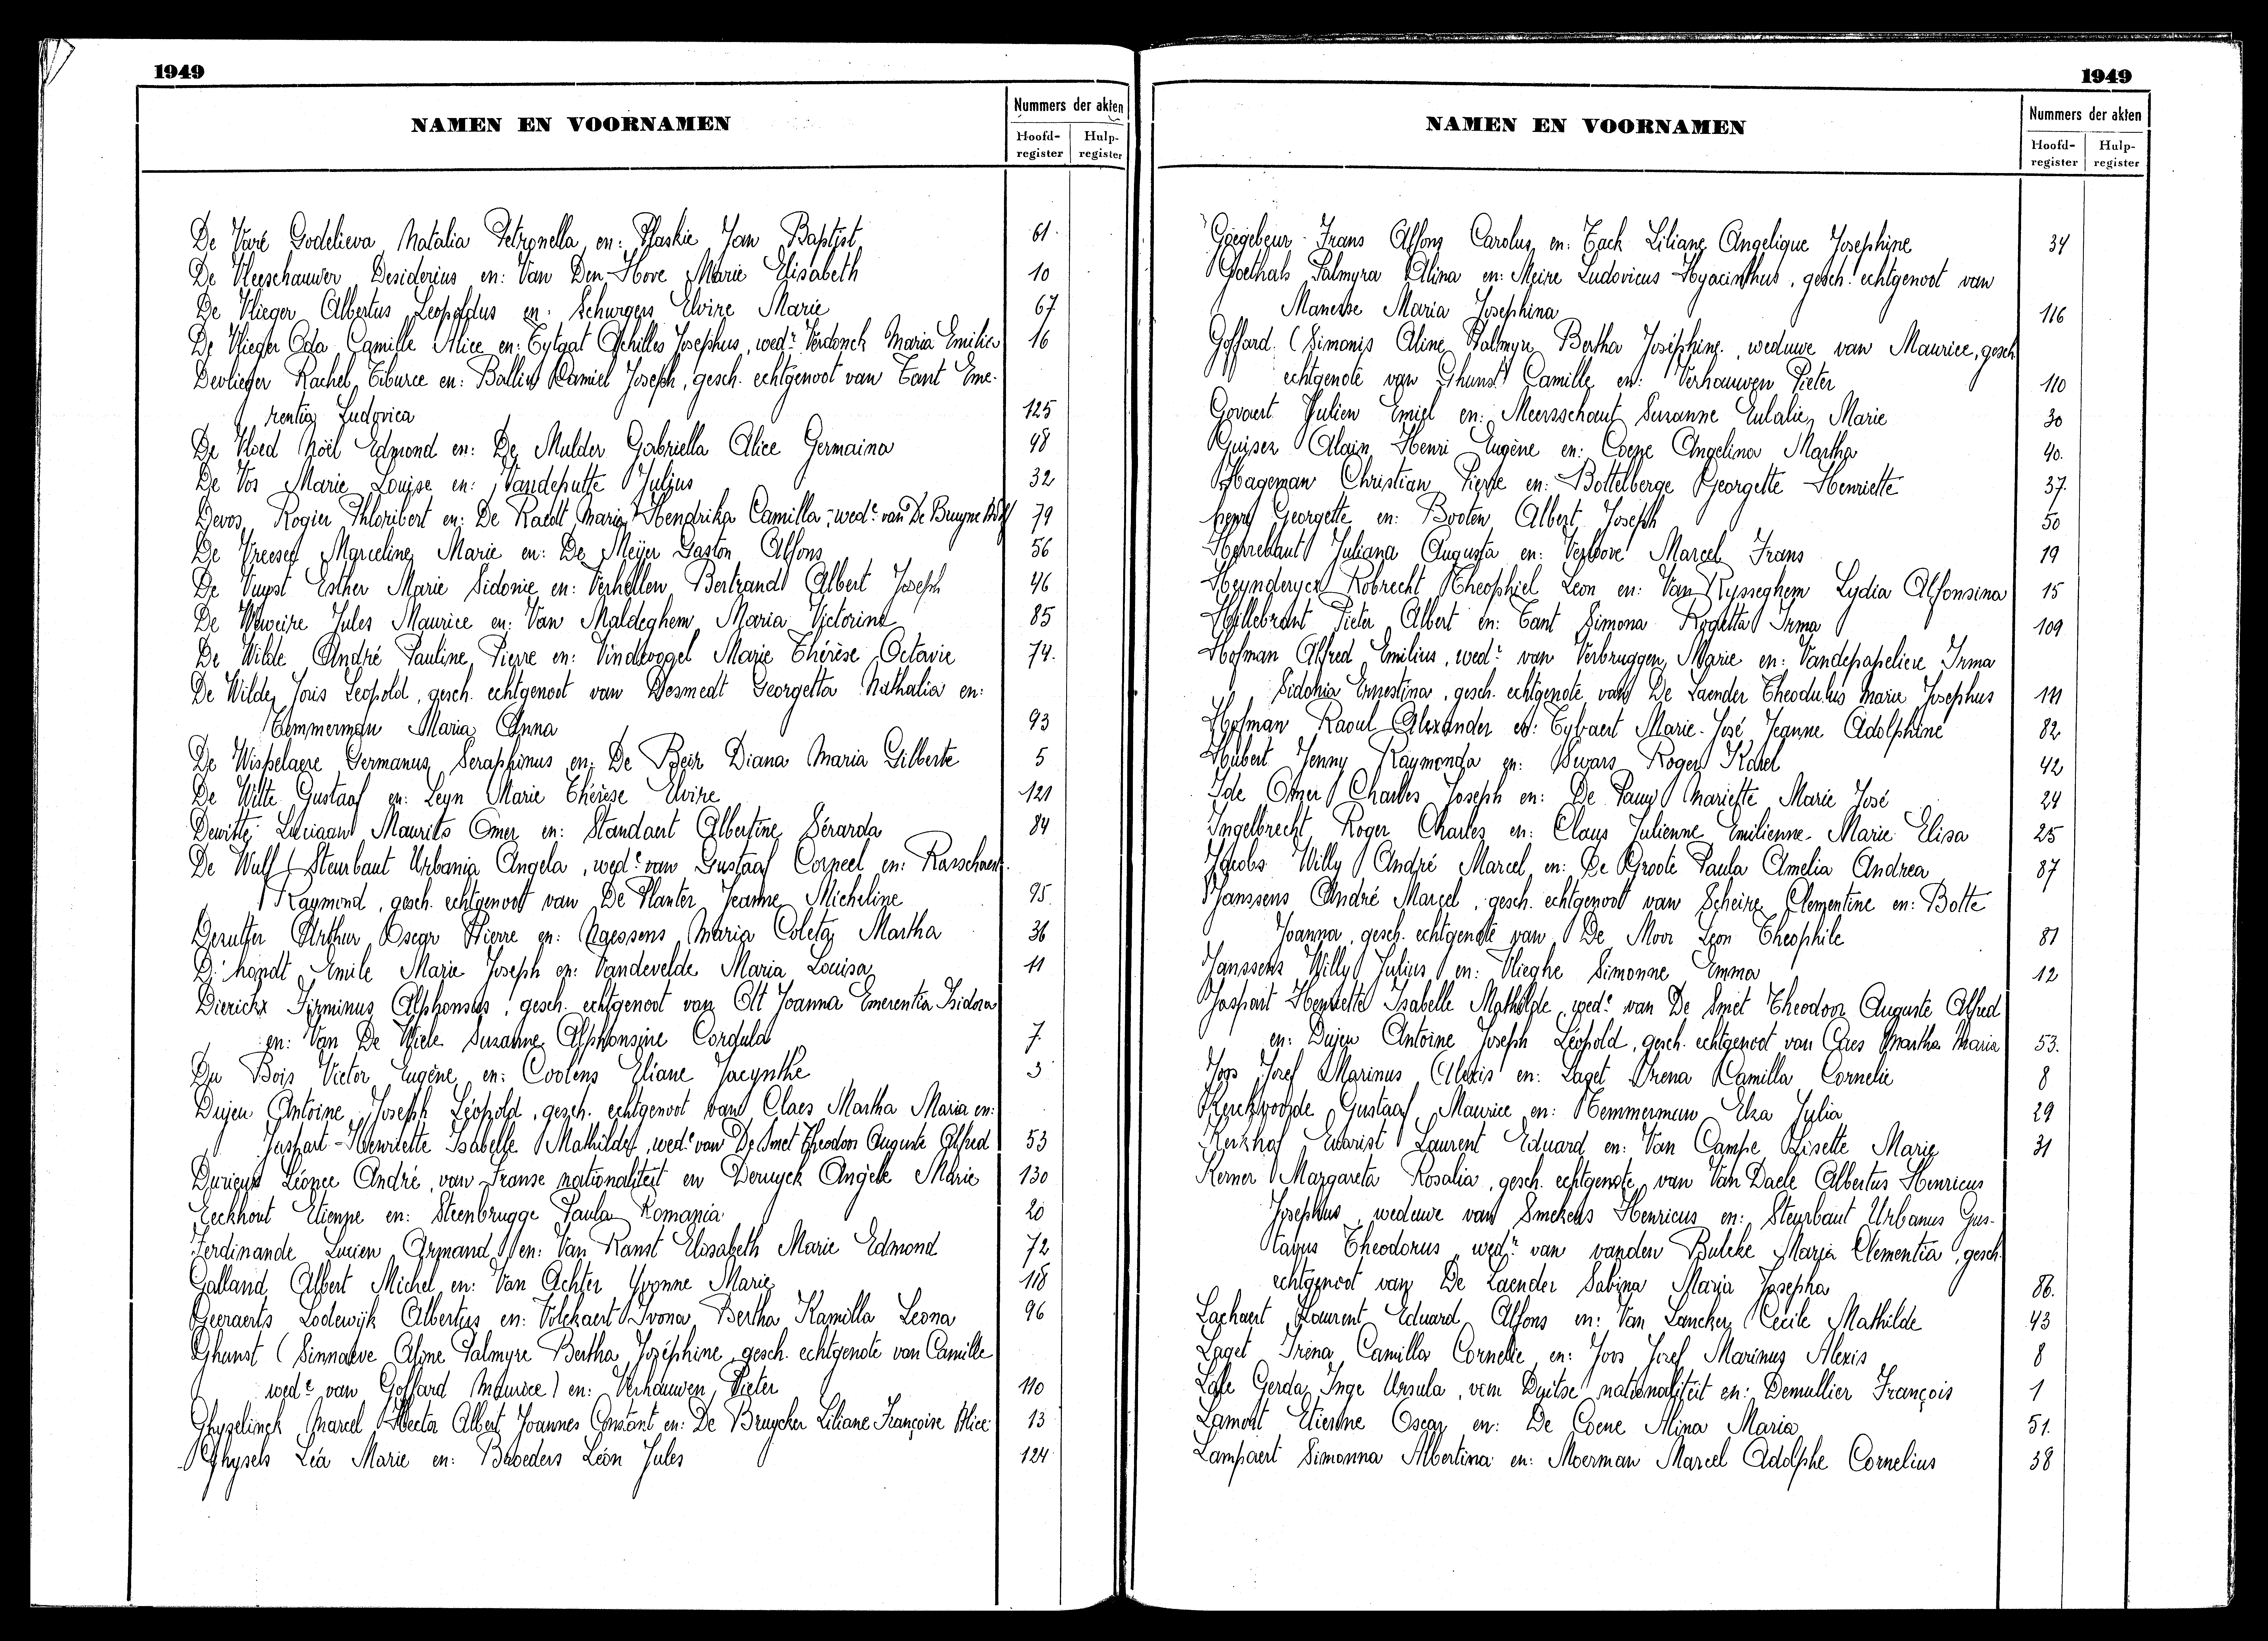 1949
NAMEN EN VOORNAMEN
Nummers der akten
Hoofd-register
Hulp-register
De Varé Godelieva Natalia Petronella en: Plaskie Jan Baptist 61
De Vleeschauwer Desiderius en: Van Den Hove Marie Elisabeth 10
De Vlieger Albertus Leopoldus en: Schurgers Elvire Marie 67
De Vlieger Oda Camille Alice en: Eytgat Achilles Josephus, wedr Verdonck Maria Emilie 16
Devlieger Rachel Tiburce en: Ballin Camiel Joseph, gesch. echtgenoot van Tant Eme-
rentia Ludovica 125
De Vloed Noël Edmond en: De Mulder Gabriella Alice Germaina 48
De Vos Marie Louise en: Vandeputte Julius 32
Devos Rogier Floribert en: De Raedt Maria Hendrika Camilla, wede van De Bruyne 79
De Vreese Marceline Marie en: De Meijer Gaston Alfons 56
De Vuyst Esther Marie Sidonie en: Verhellen Bertrand Albert Joseph 46
De Weweire Jules Maurice en: Van Maldeghem Maria Victorine 85
De Wilde André Pauline Pierre en: Vindevogel Marie Thérèse Octavie 74.
De Wilde Joris Leopold, gesch. echtgenoot van Desmedt Georgetta Nathalia en:
Temmerman Maria Anna 93
De Wispelaere Germanus Seraphinus en: De Beir Diana Maria Gilberte 5
De Witte Gustaaf en: Leyn Marie Thérèse Elvire 121
Dewitte Luciaan Maurits Omer en: Standaert Albertine Gérarda 84
De Wulf (Steurbaut Urbania Angela, wede van Gustaaf Corneel en: Rasschaert
Raymond, gesch. echtgenoot van De Planter Jeanne Micheline 95
Dezutter Arthur Oscar Pierre en: Naessens Maria Coleta Martha 36
D'hondt Emile Marie Joseph en: Vandevelde Maria Louisa 11
Dierickx Firminus Alphonsus, gesch. echtgenoot van Alt Joanna Emerentia Isidora
en: Van De Wiele Suzanne Alphonsine Cordula 7
Du Bois Victor Eugène en: Coolens Eliane Jacynthe 3
Dujeu Antoine Joseph Léopold, gesch. echtgenoot van Claes Martha Maria en:
Jaspart Henriette Isabelle Mathilde, wede van De Smet Theodoor Auguste Alfred 53
Durieux Léonce André, van Franse nationaliteit en Deruyck Angèle Marie 130
Eeckhout Etienne en: Steenbrugge Paula Romania 20
Ferdinande Lucien Armand en: Van Ranst Elisabeth Marie Edmond 72
Galland Albert Michel en: Van Achter Yvonne Marie 118
Geeraerts Lodewijk Albertus en: Volckaert Ivona Bertha Kamilla Leona 96
Ghunst (Sinnaeve Aline Palmyre Bertha Joséphine, gesch. echtgenote van Camille
wede van Goffard Maurice) en: Verhauwen Pieter 110
Ghyselinck Marcel Hector Albert Joannes Constant en: De Bruycker Liliane Françoise Alice 13
Ghysels Léa Marie en: Broeders Léon Jules 124
1949
NAMEN EN VOORNAMEN
Nummers der akten
Hoofd-register
Hulp-register
Goegebeur Frans Alfons Carolus en: Tack Liliane Angelique Josephine 34
Goethals Palmyra Alina en: Meire Ludovicus Hyacinthus, gesch. echtgenoot van
Manesse Maria Josephina 116
Goffard (Simonis Aline Palmyre Bertha Joséphine, weduwe van Maurice, gesch.
echtgenote van Ghunst Camille en: Verhauwen Pieter 110
Govaert Julien Emiel en: Meersschaut Suzanne Eulalie Marie 30
Guisez Alain Henri Eugène en: Coene Angelina Martha 40.
Hageman Christian Pierre en: Bottelberge Georgette Henriette 37.
Henry Georgette en: Booten Albert Joseph 50
Herrebaut Juliana Augusta en: Verloove Marcel Frans 19
Heynderyckx Robrecht Theophiel Leon en: Van Rysseghem Lydia Alfonsina 15
Hillebrant Pieter Albert en: Tant Simona Rogetta Irma 109
Hofman Alfred Emilius, wedr van Verbruggen Marie en: Vandepapeliere Irma
Sidonia Ernestina, gesch. echtgenote van De Laender Theodulus Marie Josephus 111
Hofman Raoul Alexander en: Tytgaert Marie-José Jeanne Adolphine 82
Hubert Jenny Raymonda en: Swars Roger Karel 42
Ide Omer Charles Joseph en: De Pauw Mariette Marie José 24
Ingelbrecht Roger Charles en: Claus Julienne Emilienne Marie Elisa 25
Jacobs Willy André Marcel en: De Groote Paula Amelia Andrea 87
Janssens André Marcel, gesch. echtgenoot van Scheire Clementine en: Botte
Joanna, gesch. echtgenote van De Moor Leon Theophile 81
Janssens Willy Julius en: Vlieghe Simonne Emma 12
Jaspart Henriette Isabelle Mathilde, wede van De Smet Theodoor Auguste Alfred
en: Dujeu Antoine Joseph Léopold, gesch. echtgenoot van Claes Martha Maria 53.
Joos Jozef Marinus Alexis en: Laget Irena Camilla Cornelie 8
Kerckvoorde Gustaaf Maurice en: Temmerman Elza Julia 29
Kerkhof Evarist Laurent Eduard en: Van Campe Lisette Marie 31
Kerner Margareta Rosalia, gesch. echtgenote van Van Daele Albertus Henricus
Josephus, weduwe van Smekens Henricus en: Steurbaut Urbanus Gus-
tavus Theodorus, wedr van vanden Bulcke Maria Clementia, gesch.
echtgenoot van De Laender Sabina Maria Josepha 86.
Lachaert Laurent Eduard Alfons en: Van Lancker Cecile Mathilde 43
Laget Irena Camilla Cornelie en: Joos Jozef Marinus Alexis 8
Gerda Inge Ursula, van Duitse nationaliteit en: Demullier François 1
Lamont Etienne Oscar en: De Coene Alina Maria 51.
Lampaert Simonna Albertina en: Moerman Marcel Adolphe Cornelius 38